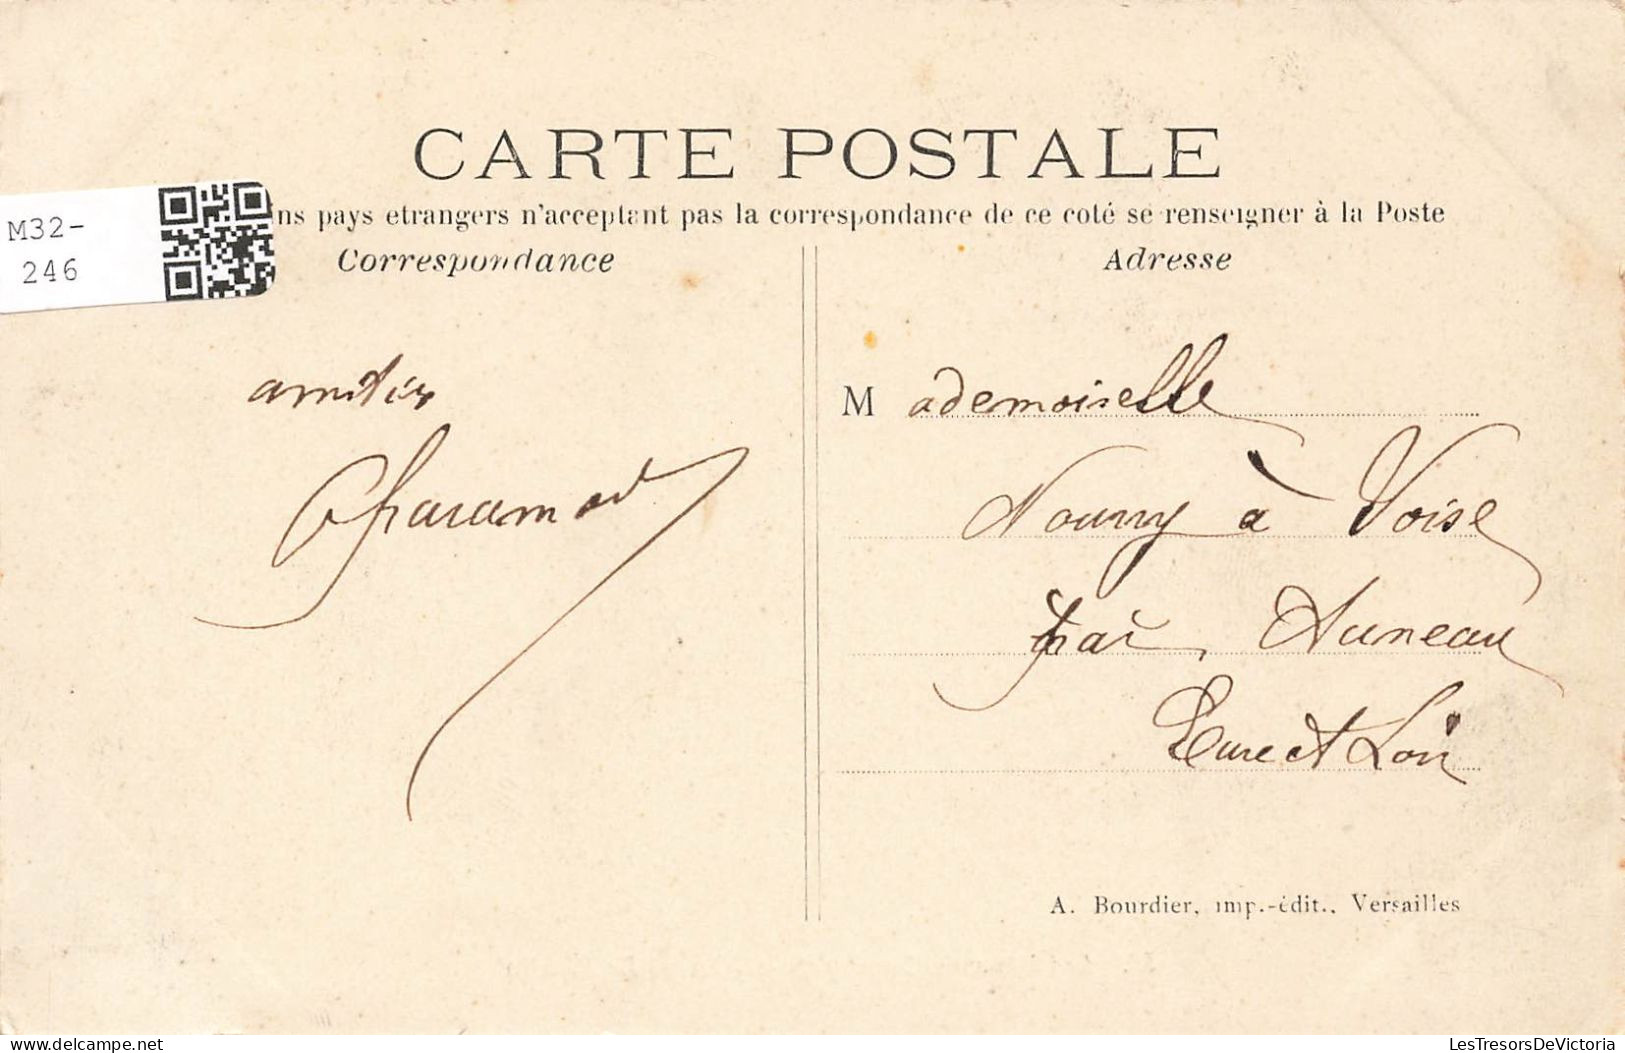 CARTE POSTALE
ns pays etrangers n'acceptant pas la correspondance de ce coté se renseigner à la Poste
M32-
246
Correspondance
amitiés
Adresse
Mademoiselle
Nourry à Voise
par Auneau
Eure et Loir
A. Bourdier, imp.-édit., Versailles
delcampe.net
LesTresorsDeVictoria